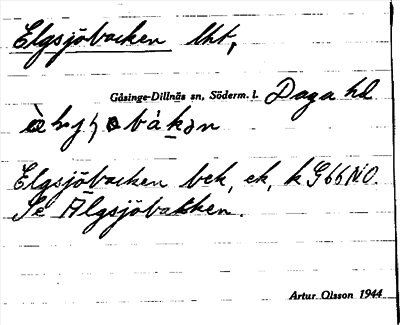 Elgsjöbacken lht,
Gåsinge-Dillnäs sn, Söderm. l. Daga hd
Elgsjöbacken bek, ek, k G66 NO.
Se Älgsjöbacken.
Artur Olsson 1944